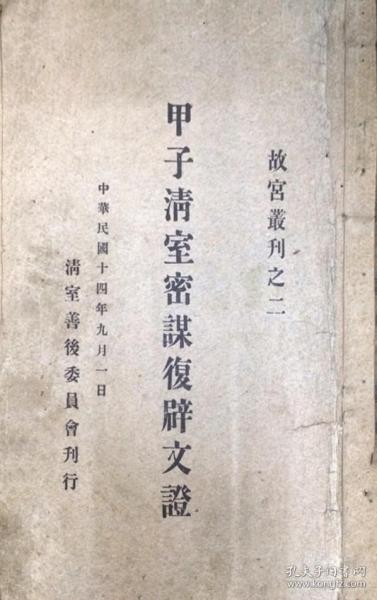 故宮叢刊之二
甲子清室密謀復辟文證
中華民國十四年九月一日
清室善後委員會刊行
孔夫子旧书网
kongfz.com